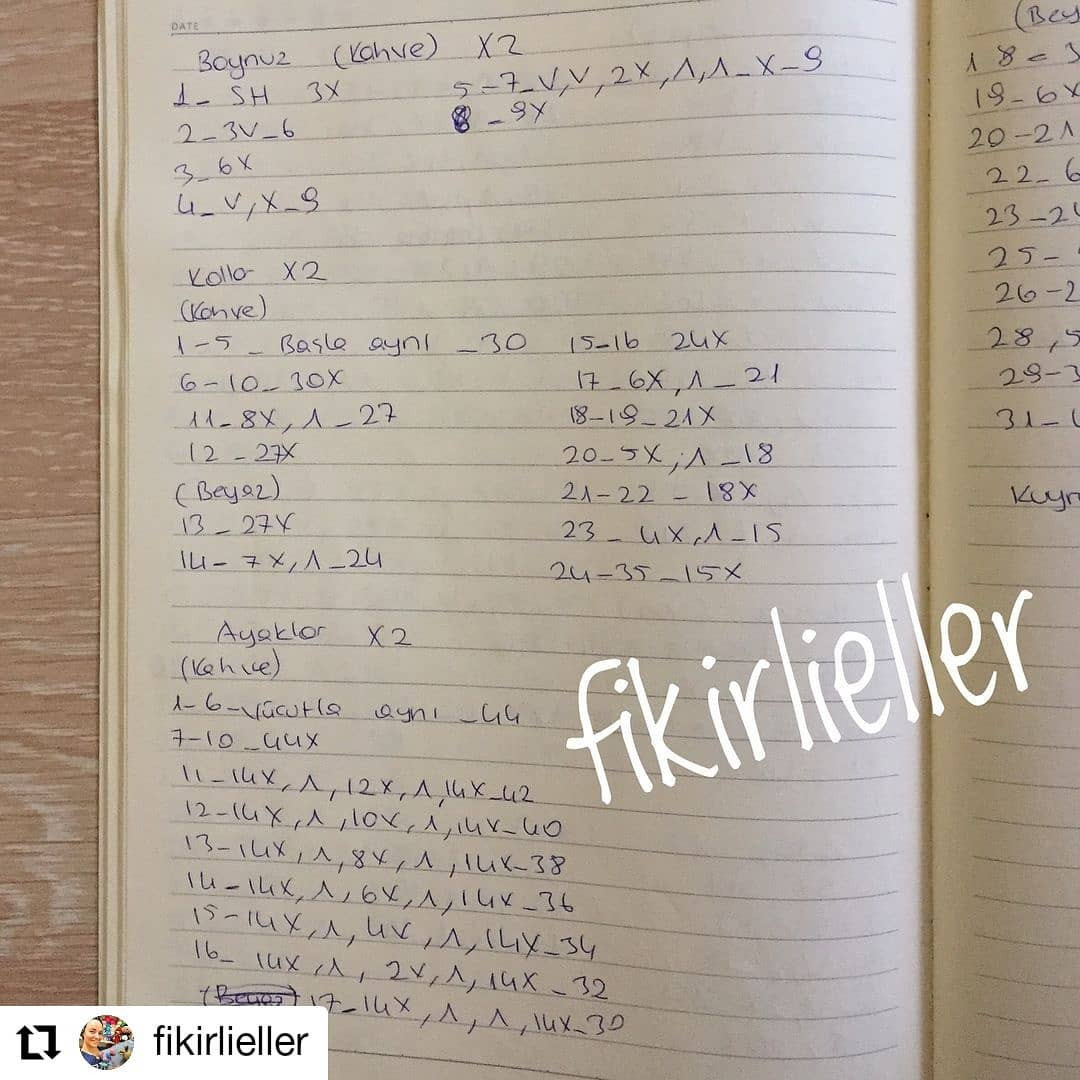 DATE
Boynuz (Kahve) X2
1- SH 3X
2-3V-6
3-6X
4-V,X-9
5-7-V,V,2X,Λ,Λ-X-9
8-9X
Kollar X2
(Kahve)
1-5- Başla aynı -30
6-10-30X
11-8X,Λ-27
12-27X
(Beyaz)
13-27X
14-7X,Λ-24
15-16 24X
17-6X,Λ-21
18-19-21X
20-5X,Λ-18
21-22-18X
23-4X,Λ-15
24-35-15X
Ayaklar X2
(Kahve)
1-6-Vücutla aynı -44
7-10-44X
11-14X,Λ,12X,Λ,14X-42
12-14X,Λ,10X,Λ,14X-40
13-14X,Λ,8X,Λ,14X-38
14-14X,Λ,6X,Λ,14X-36
15-14X,Λ,4X,Λ,14X-34
16-14X,Λ,2X,Λ,14X-32
(Beyaz) 17-14X,Λ,Λ,14X-30
(Bey
18-3
19-6X
20-21
22-6
23-24
25-
26-2
28,5
29-3
31-
Kuyr
fikirlieller
fikirlieller